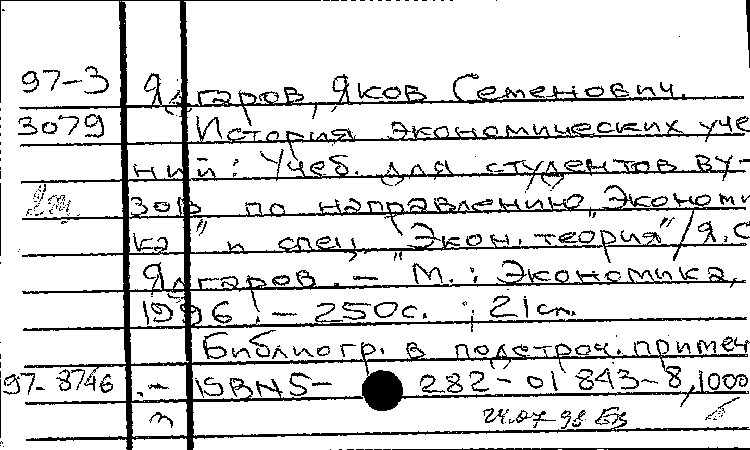 97-3 Ядгаров, Яков Семенович.
3079 История экономических уче
ний: Учеб. для студентов ву-
2эк зов по направлению „Экономи
ка" и спец. „Экон. теория"/Я.С
Ядгаров. - М.: Экономика,
1996. - 250с. ; 21см.
Библиогр. в подстроч. примеч
97-8746 .- ISBN5- 282-01843-8, 1000
3 24.07.98 БВ